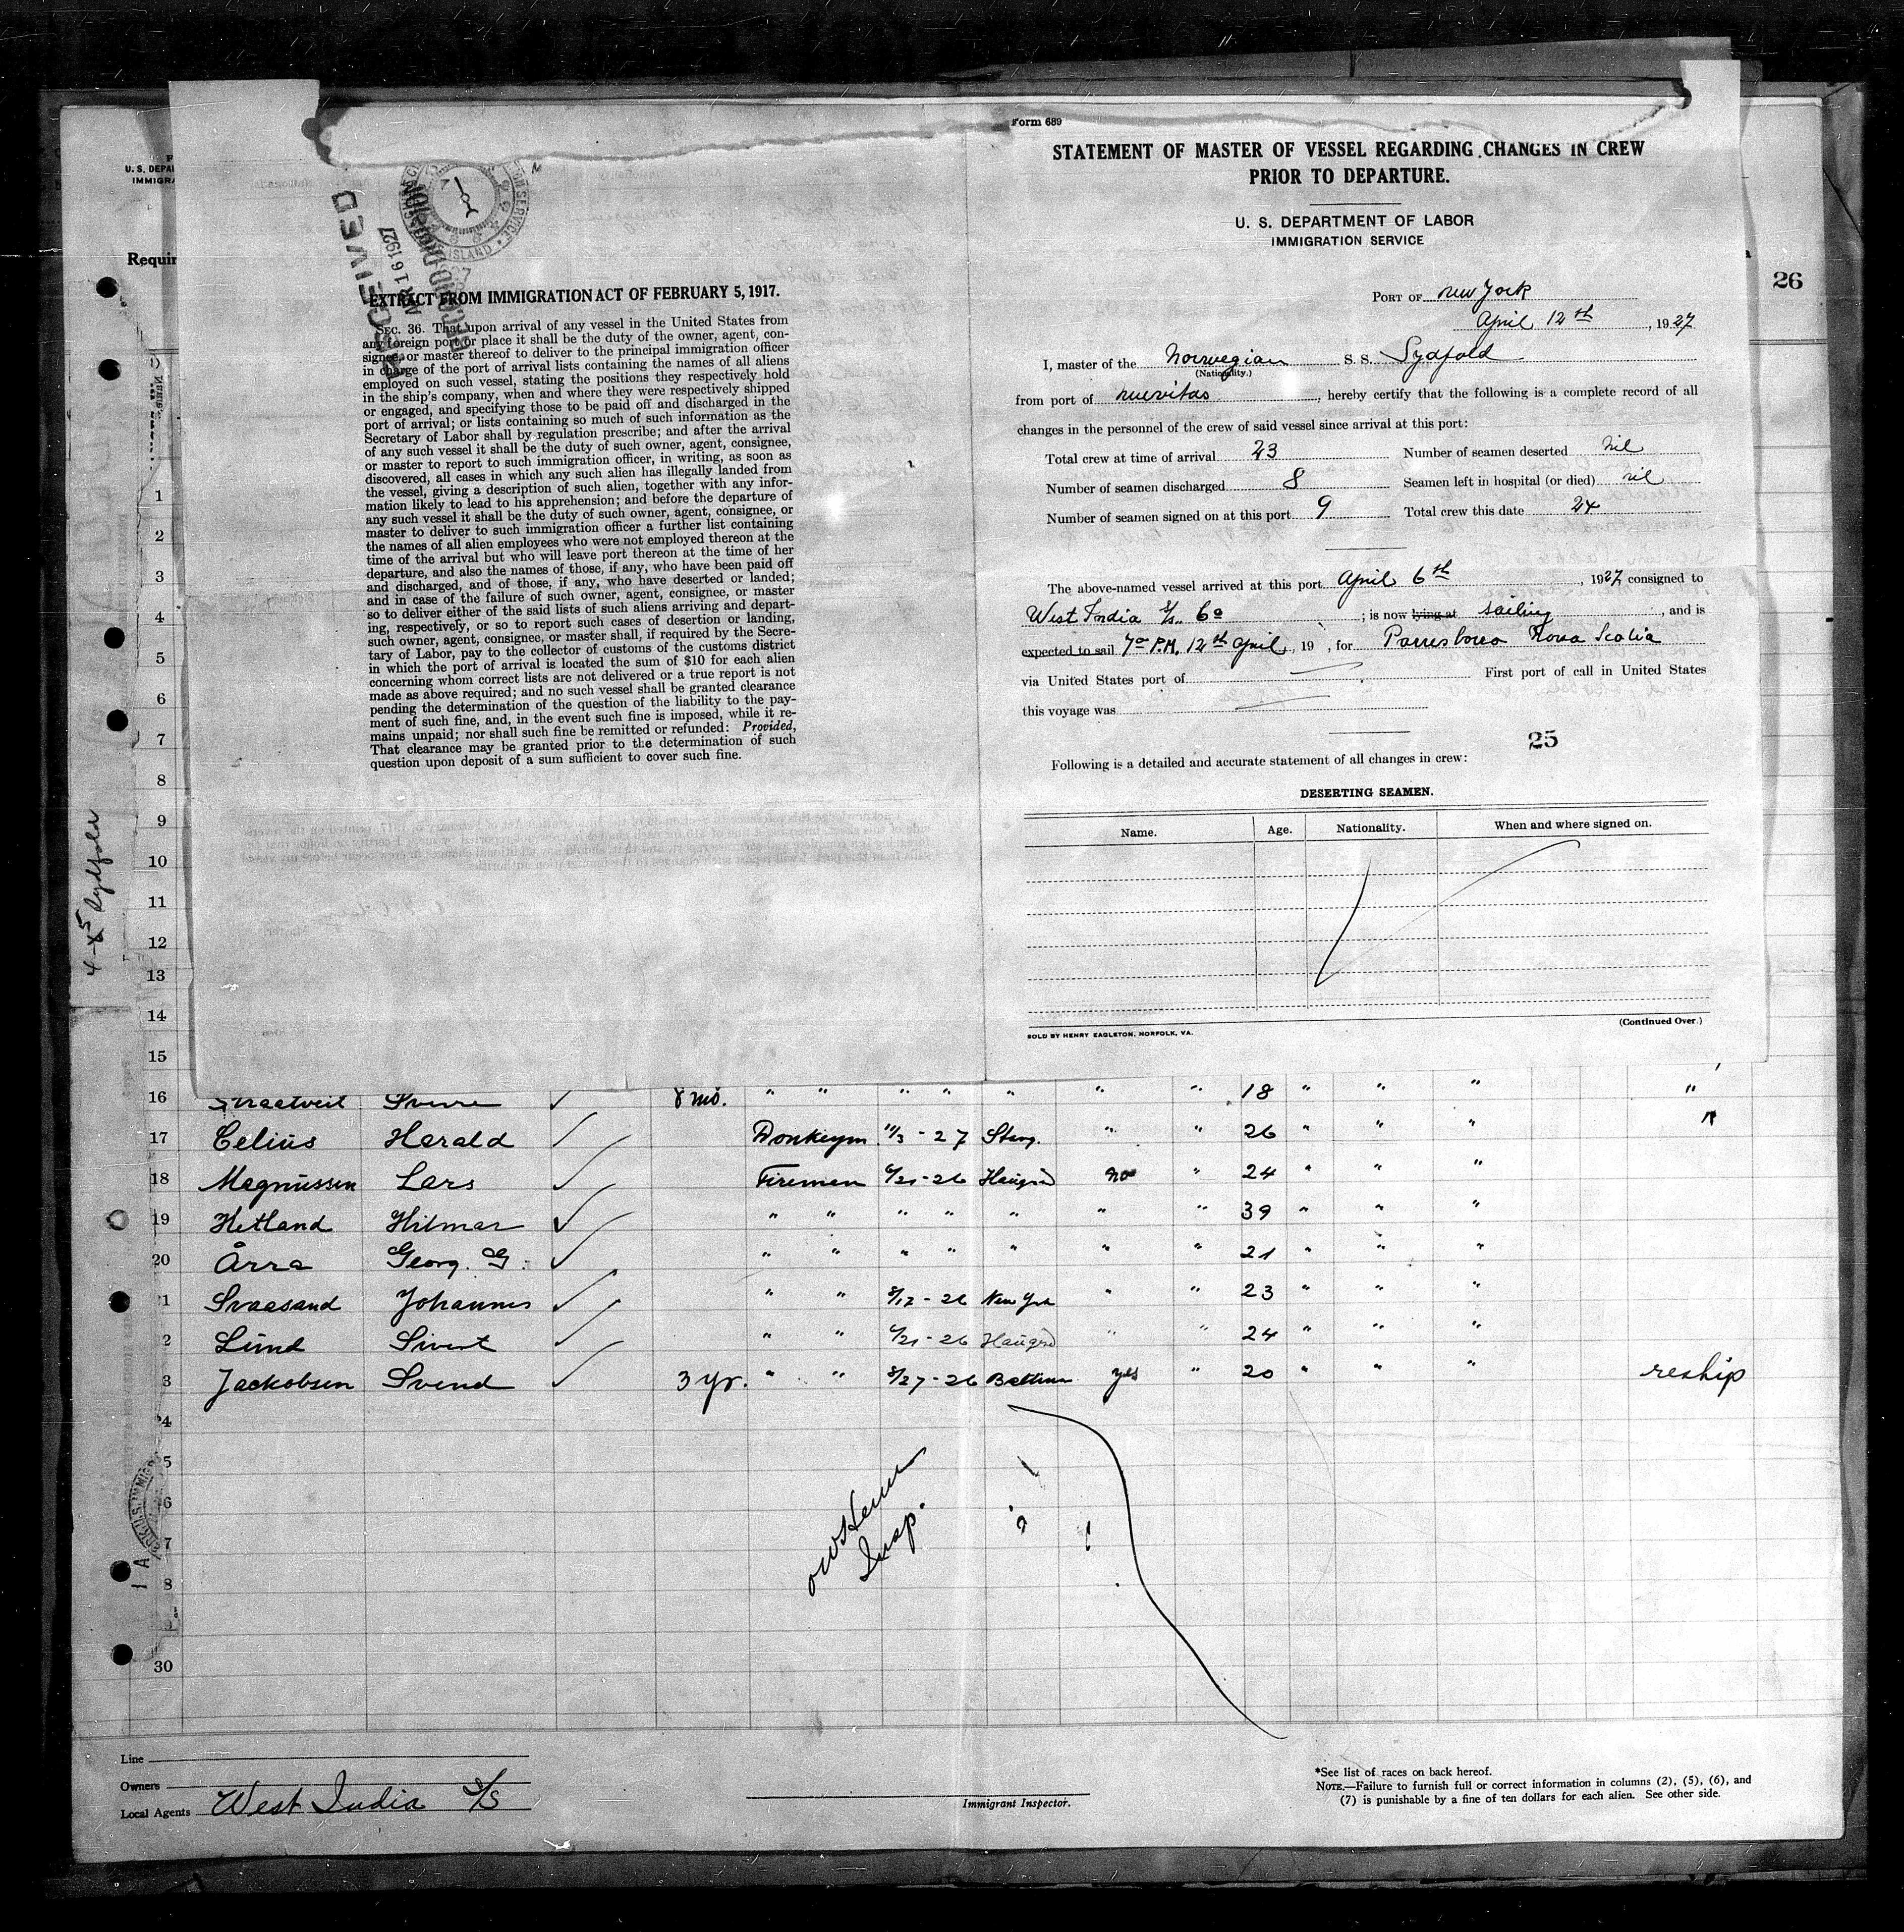 Form 689
STATEMENT OF MASTER OF VESSEL REGARDING CHANGES IN CREW
PRIOR TO DEPARTURE.
U. S. DEPARTMENT OF LABOR
IMMIGRATION SERVICE
PORT OF New York
April 12th, 1927
I, master of the Norwegian S. S. Sydfold
(Nationality.)
from port of nuevitas, hereby certify that the following is a complete record of all
changes in the personnel of the crew of said vessel since arrival at this port:
Total crew at time of arrival 23 Number of seamen deserted nil
Number of seamen discharged 8 Seamen left in hospital (or died) nil
Number of seamen signed on at this port 9 Total crew this date 24
The above-named vessel arrived at this port April 6th, 1927 consigned to
West India S/S. Co; is now lying at sailing, and is
expected to sail 7oo P.M. 12th April, 19 , for Parrsboro Nova Scotia
via United States port of First port of call in United States
this voyage was
25
Following is a detailed and accurate statement of all changes in crew:
DESERTING SEAMEN.
Name. Age. Nationality. When and where signed on.
(Continued Over.)
SOLD BY HENRY EAGLETON, NORFOLK, VA.
RECEIVED
APR 16 1927
EXTRACT FROM IMMIGRATION ACT OF FEBRUARY 5, 1917.
SEC. 36. That upon arrival of any vessel in the United States from
any foreign port or place it shall be the duty of the owner, agent, con-
signee, or master thereof to deliver to the principal immigration officer
in charge of the port of arrival lists containing the names of all aliens
employed on such vessel, stating the positions they respectively hold
in the ship's company, when and where they were respectively shipped
or engaged, and specifying those to be paid off and discharged in the
port of arrival; or lists containing so much of such information as the
Secretary of Labor shall by regulation prescribe; and after the arrival
of any such vessel it shall be the duty of such owner, agent, consignee,
or master to report to such immigration officer, in writing, as soon as
discovered, all cases in which any such alien has illegally landed from
the vessel, giving a description of such alien, together with any infor-
mation likely to lead to his apprehension; and before the departure of
any such vessel it shall be the duty of such owner, agent, consignee, or
master to deliver to such immigration officer a further list containing
the names of all alien employees who were not employed thereon at the
time of the arrival but who will leave port thereon at the time of her
departure, and also the names of those, if any, who have been paid off
and discharged, and of those, if any, who have deserted or landed;
and in case of the failure of such owner, agent, consignee, or master
so to deliver either of the said lists of such aliens arriving and depart-
ing, respectively, or so to report such cases of desertion or landing,
such owner, agent, consignee, or master shall, if required by the Secre-
tary of Labor, pay to the collector of customs of the customs district
in which the port of arrival is located the sum of $10 for each alien
concerning whom correct lists are not delivered or a true report is not
made as above required; and no such vessel shall be granted clearance
pending the determination of the question of the liability to the pay-
ment of such fine, and, in the event such fine is imposed, while it re-
mains unpaid; nor shall such fine be remitted or refunded: Provided,
That clearance may be granted prior to the determination of such
question upon deposit of a sum sufficient to cover such fine.
U. S. DEPA
IMMIGRA
Requir
26
4-5 Sydfold
1
2
3
4
5
6
7
8
9
10
11
12
13
14
15
16 Straatveit Sverre 8 mo. " " " " " " " 18 " " " "
17 Celius Harald Donkeym 11/3-27 Stavg. " " 26 " " " "
18 Magnussen Lars Firemen 6/21-26 Haugsd no " 24 " " "
19 Hetland Hilmar " " " " " " " 39 " " "
20 Årra Georg. G. " " " " " " " 21 " " "
1 Svaasand Johannes " " 8/12-26 New York " " 23 " " "
2 Lund Sivert " " 6/21-26 Haugsd " " 24 " " "
3 Jackobsen Svend 3 yr. " " 8/27-26 Baltim yes " 20 " " " reship
4
5
6
7
8
30
Insp.
Line
Owners
Local Agents West India S/S
Immigrant Inspector.
*See list of races on back hereof.
NOTE.—Failure to furnish full or correct information in columns (2), (5), (6), and
(7) is punishable by a fine of ten dollars for each alien. See other side.